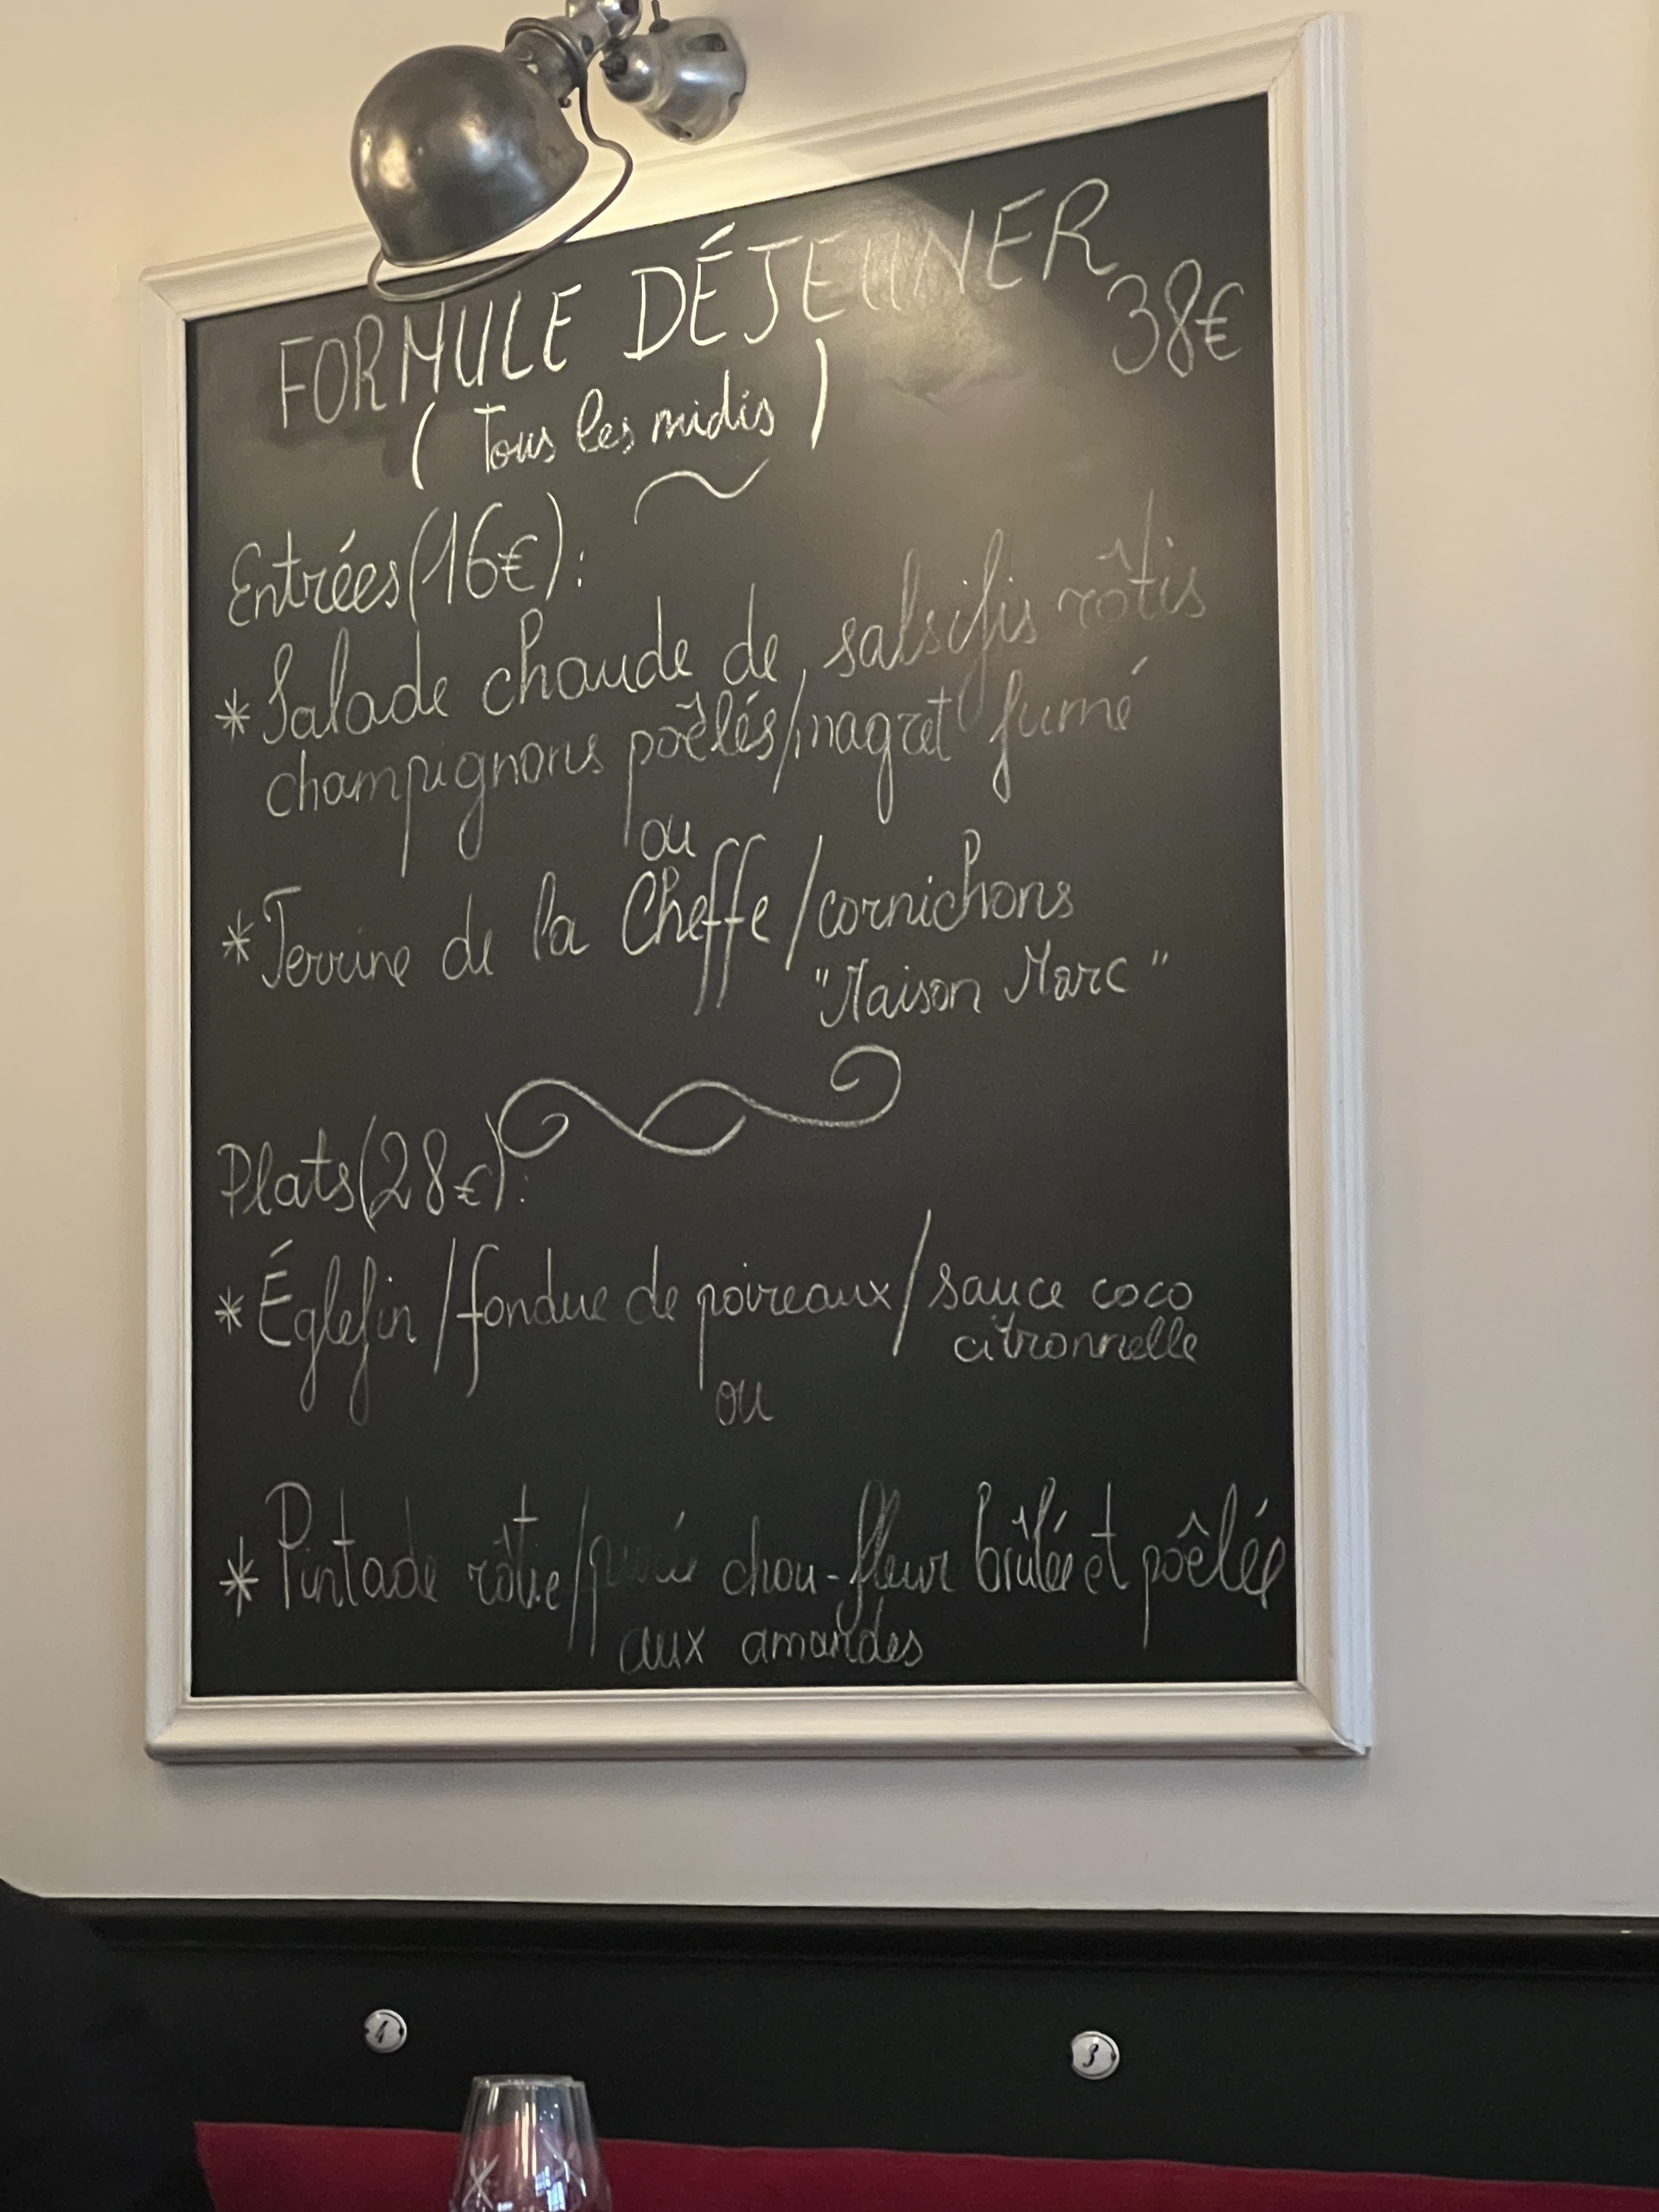 FORMULE DÉJEUNER
38€
( Tous les midis )
Entrées (16€) :
* Salade chaude de salsifis rôtis
champignons poêlés / magret fumé
ou
* Terrine de la Cheffe / cornichons
"Maison Marc"
Plats (28€) :
* Églefin / fondue de poireaux / sauce coco
citronnelle
ou
* Pintade rôtie / purée chou-fleur brûlée et poêlée
aux amandes
4
3